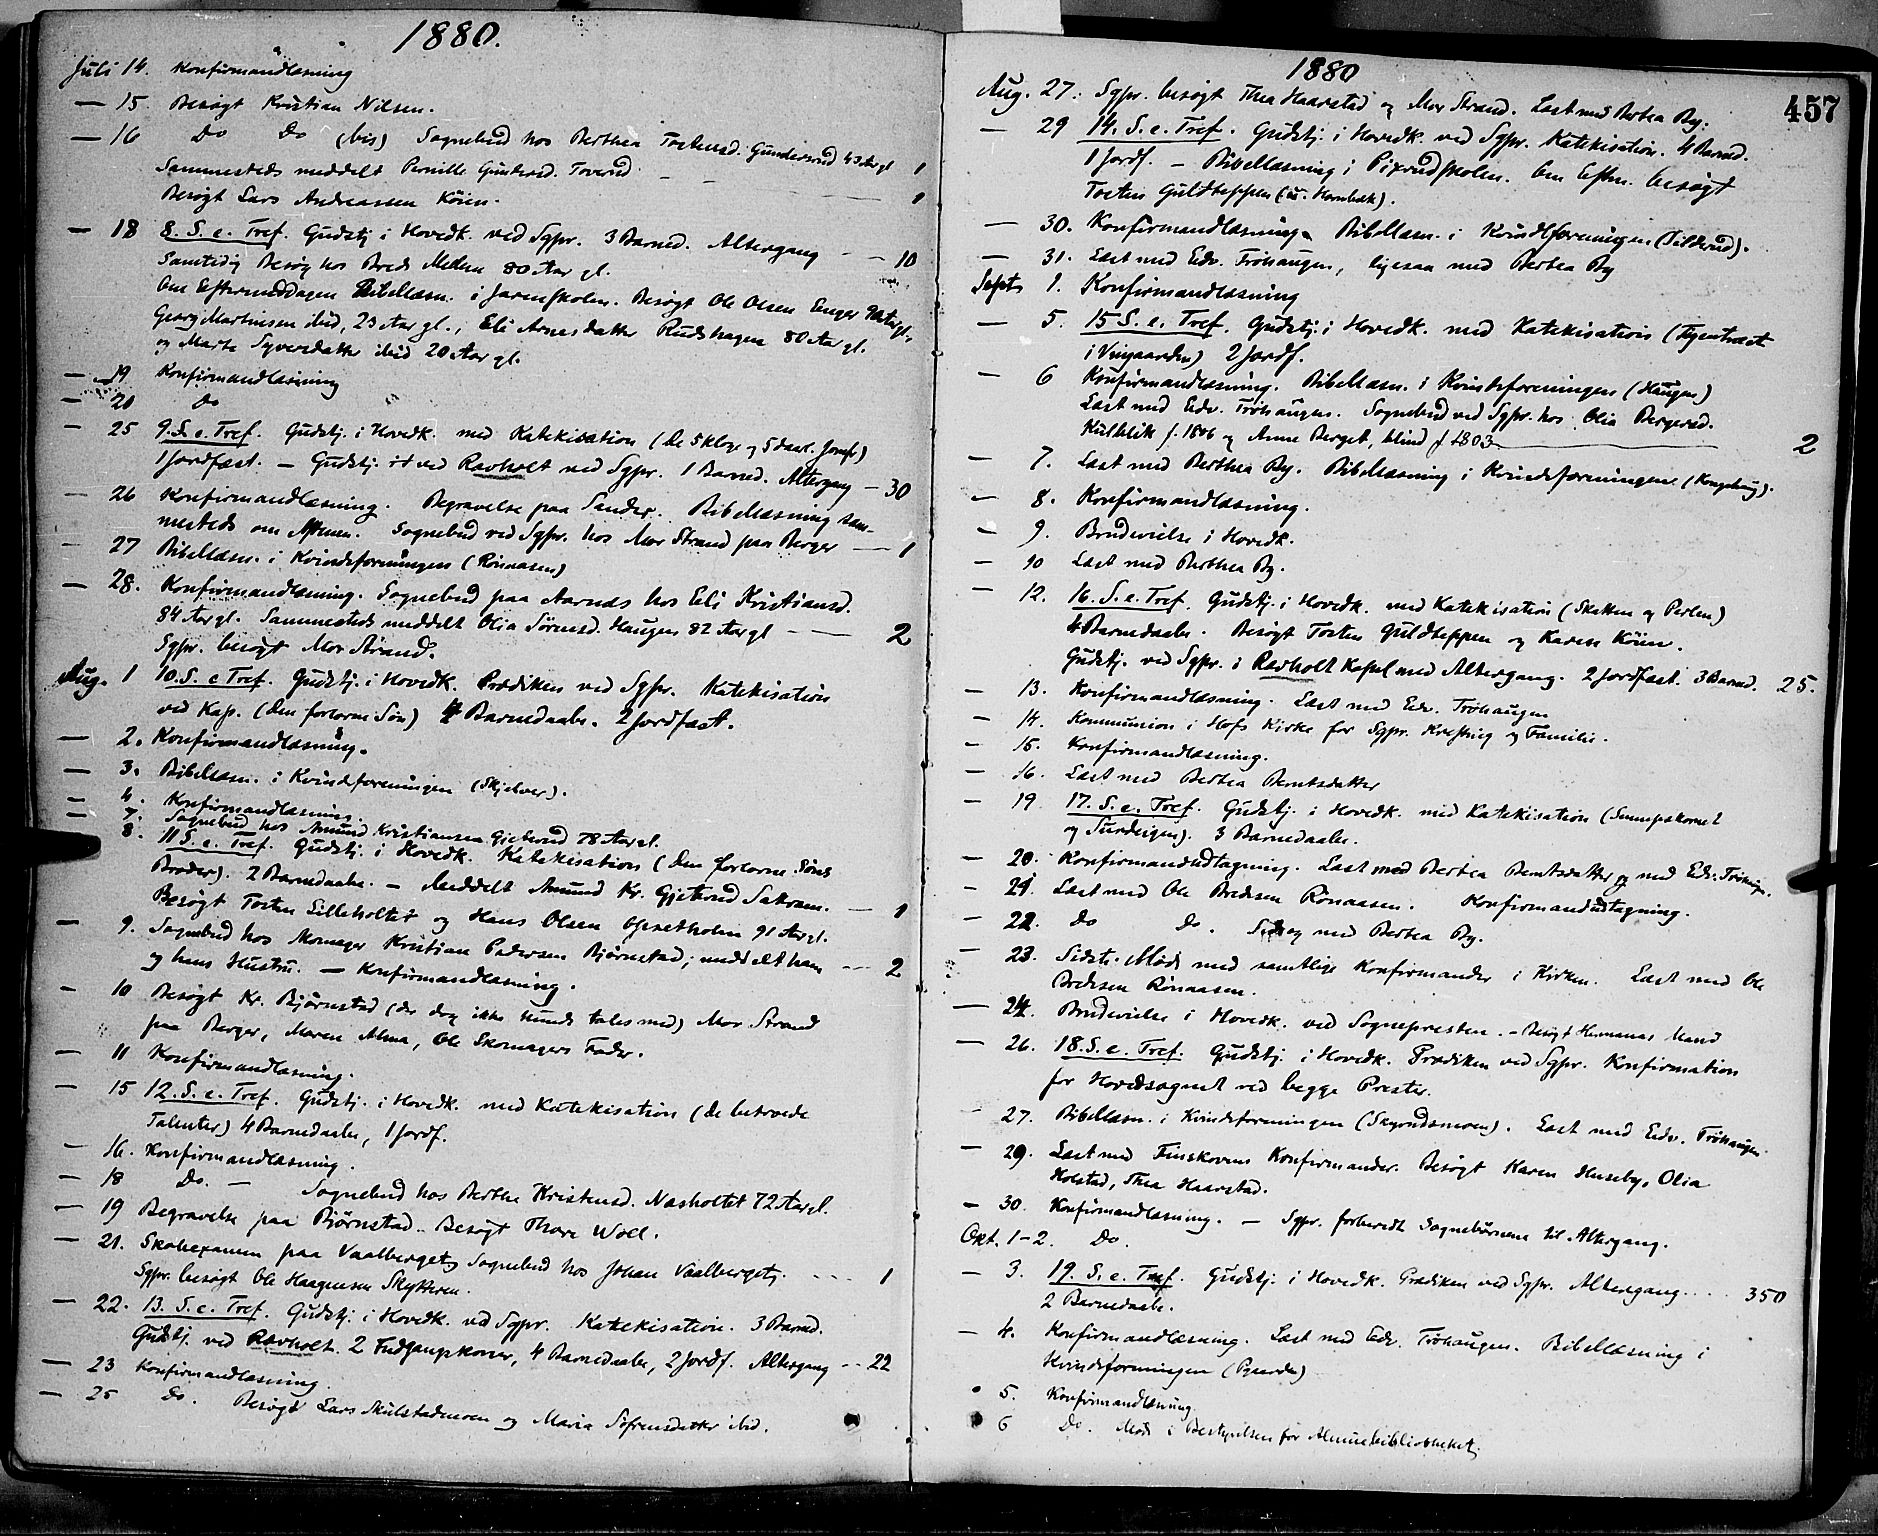 1880.
Juli 14. Konfirmandlæsning
— 15. Besøgt Kristian Nilsen.
— 16 Do Do (bis) Sognebud hos Berthea Tostensd. Gundersrud 43 Aar gl 1
Sammesteds meddelt Pernille Gundersd. Toverud — — 1
Besøgt Lars Andreassen Köien.
— 18 8. S. e. Tref. Gudstj. i Hovedk. ved Sgpr. 3 Barned. Altergang — — 10
Samtidig Besøg hos Brede Mellem 80 Aar gl.
Om Eftermiddagen Bibellæsn. i Jarenskolen. Besøgt Ole Olsen Enger Aar gl.,
Georg Martinsen ibid, 23 Aar gl., Eli Arnesdatter Rudshagen 80 Aar gl.
og Marte Syversdatter ibid 20 Aar gl.
— 19 Konfirmandlæsning
— 20 Do
— 25 9. S. e. Tref. Gudstj. i Hovedk. med Katekisation (De 5 kloge og 5 daarl. Jomf.)
1 Jordfæst. — Gudstj. ved Ravholt ved Sgpr. 1 Barned. Altergang — 30
— 26 Konfirmandlæsning. Begravelse paa Sander. Bibellæsning sam-
mesteds om Aftenen. Sognebud ved Sgpr. hos Mor Strand paa Berger — 1
— 27 Bibellæsn. i Kvindeforeningen (Rönaasen)
— 28. Konfirmandlæsning. Sognebud paa Aarnæs hos Eli Kristiansd.
84 Aar gl. Sammesteds meddelt Olia Sørensd. Haugen 82 Aar gl — — 2
Sgpr. besøgt Mor Strand.
Aug. 1 10. S. e Tref. Gudstj. i Hovedk. Prædiken ved Sgpr. Katekisation
ved Kap. (Den forlorne Søn) 4 Barnedaabe. 2 Jordfæst.
— 2. Konfirmandlæsning.
— 3. Bibellæsn. i Kvindeforeningen (Skjelver).
— 4. Konfirmandlæsning.
— 7. Sognebud hos Amund Kristiansen Gjeterud 78 Aar gl.
8. 11 S. e. Tref. Gudstj. i Hovedk. Katekisation (Den forlorne Søns
Broder). 2 Barnedaabe. — Meddelt Amund Kr. Gjeterud Sakram. — 1
Besøgt Tosten Lilleholtet og Hans Olsen Opsetholen 91 Aar gl.
— 9. Sognebud hos Kristian Pedersen Bjørnstad; meddelt ham — 2
og hans Hustru. — Konfirmandlæsning.
— 10 Besøgt Kr. Bjørnstad (der dog ikke kunde tales med) Mor Strand
paa Berger, Maren Alma, Ole Skomagers Fader.
— 11 Konfirmandlæsning.
— 15 12. S. e. Tref. Gudstj. i Hovedk. med Katekisation (de betroede
Talenter) 4 Barnedaabe, 1 Jordf.
— 16. Konfirmandlæsning.
— 18 Do. — Sognebud hos Berthe Kristensd. Næsholtet 72 Aar gl.
— 19 Begravelse paa Bjørnstad. Besøgt Thore Woll.
— 21. Skoleexamen paa Vaalberget. Sognebud hos Johan Vaalberget. — 1
Sgpr. besøgt Ole Haagensen Skytteren.
— 22. 13. S. e. Tref. Gudstj. i Hovedk. ved Sgpr. Katekisation. 3 Barned.
Gudstj. ved Ravholt. 2 Indgangskoner, 4 Barnedaabe, 2 Jordf. Altergang — 22
— 23 Konfirmandlæsning
— 25 Do. Besøgt Lars Mülstadmoen og Maria Sofrensdatter ibid.
1880
457
Aug. 27: Sgpr. besøgt Thea Haarstad og Mor Strand. Læst med Bertea By.
— 29 14. S. e. Tref. Gudstj. i Hovedk. ved Sgpr. Katekisation. 4 Barned.
1 Jordf. — Bibellæsning i Pixrudskolen. Om Eftm. besøgt
Tosten Guldteppen (u. Hornbæk).
— 30. Konfirmandlæsning. Bibellæsn. i Kvindeforeningen (Tilderud).
— 31. Læst med Edv. Trøhaugen, ligesaa med Bertea By
Septs 1. Konfirmandlæsning
— 5. 15 S. e. Tref. Gudstj. i Hovedk. med Katekisation (Figentræet
i Vingaarden) 2 Jordf.
— 6 Konfirmandlæsning. Bibellæsn. i Kvindeforeningen (Haugen)
Læst med Edv. Trøhaugen. Sognebud ved Sgpr. hos Olia Bergersd.
Kulblik f. 1806 og Anne Berget, blind f. 1803 — 2
— 7. Læst med Berthea By. Bibellæsning i Kvindeforeningen (Kongshaug).
— 8. Konfirmandlæsning.
— 9. Brudevielse i Hovedk.
— 10 Læst med Berthea By.
— 12. 16. S. e. Tref. Gudstj. i Hovedk. med Katekisation (Skatten og Perlen)
4 Barnedaabe. Besøgt Tosten Guldteppen og Karen Köien.
Gudstj. ved Sgpr. i Ravholt Kapel med Altergang. 2 Jordfæst. 3 Barned. 25.
— 13. Konfirmandlæsning. Læst med Edv. Trøhaugen
— 14. Kommunion i Hofs Kirke for Sgpr. Krefting og Familie.
— 15. Konfirmandlæsning.
— 16. Læst med Bertea Berntsdatter
— 19 17. S. e. Tref. Gudstj. i Hovedk. med Katekisation (Sennepskornet
og Surdeigen). 3 Barnedaabe.
— 20. Konfirmandudtagning. Læst med Bertea Berntsdatter og med Edv. Trøhaugen.
— 21. Læst med Ole Bredesen Rönaasen. Konfirmandudtagning.
— 22. Do Do. og med Bertea By.
— 23. Sidste Møde med samtlige Konfirmander i Kirken. Læst med Ole
Bredesen Rönaasen.
— 24. Brudevielse i Hovedk. ved Sognepresten. — Besøgt Hermanas Mand
— 26. 18. S. e. Tref. Gudstj. i Hovedk. Prædiken ved Sgpr. Konfirmation
for Hovedsognet ved begge Prester.
— 27. Bibellæsn. i Kvindeforeningen (Skyrudsmoen). Læst med Edv. Trøhaugen.
— 29. Læst med Finskovens Konfirmander. Besøgt Karen Huseby, Olia
Holstad, Thea Haarstad.
— 30. Konfirmandlæsning. — Sgpr. forberedt Sognebørnene til Altergang.
Okt. 1-2. Do.
— 3. 19. S. e. Tref. Gudstj. i Hovedk. Prædiken ved Sgpr. Altergang.... 350
2 Barnedaabe.
— 4. Konfirmandlæsning. Læst med Edv. Trøhaugen. Bibellæsning i
Kvindeforeningen
5. Konfirmandlæsning.
6 Do. Møde i Bestyrelsen for Almuebibliotheket.